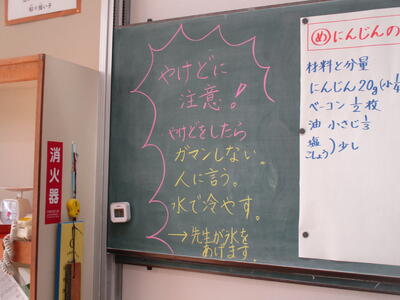 やけどに
注意!
やけどをしたら
ガマンしない。
人に言う。
水で冷やす。
→先生が氷を
あげます。
めにんじんの
材料と分量
にんじん 20g(小
ベーコン 1/2 枚
油 小さじ 1/3
塩
こしょう)少し
消火器